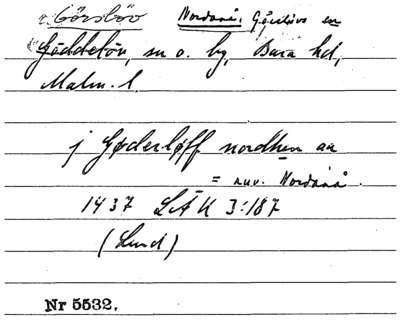 v. Görslöv Nordanå, Görslövs sn
Göddelöv, sn o. by, Bara hd,
Malm. l.
j Gøderløff nordhen aa
= nuv. Nordanå.
1437 LÄU 3:187
(Lund)
Nr 5532.